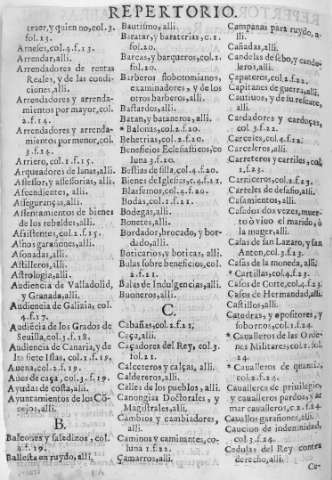 REPERTORIO.
traer, y quien no, col. 3.
fol. 13.
Arneses, col. 4. f. 13.
Arrendar, alli.
Arrendadores de rentas
Reales, y de las condi-
ciones, alli.
Arrendadores y arrenda-
mientos por mayor, col.
2. f. 14.
Arrendadores y arrenda-
mientos por menor, col.
3. f. 14.
Arriero, col. 1. f. 15.
Arqueadores de lanas, alli.
Assessor, y assessorias, alli.
Ascendientes, alli.
Asseguranças, alli.
Assentamientos de bienes
de los rebeldes, alli.
Assistentes, col. 2. f. 15.
Asnos garañones, alli.
Asonadas, alli.
Astilleros, alli.
Astrologia, alli.
Audiencia de Valladolid,
y Granada, alli.
Audiencia de Galizia, col.
4. f. 17.
Audiécia de los Grados de
Seuilla, col. 3. f. 18.
Audiencia de Canaria, y de
las siete Islas, col. 1. f. 19.
Auena, col. 2. f. 19.
Aues de caça, col. 3. f. 19.
Ayudas de costa, alli.
Ayuntamientos de los Có-
sejos, alli.
B.
Balcones y saledizos, col.
4. f. 19.
Ballesta en ruydo, alli.
Bautismo, alli.
Baratar, y baraterias, c. 1.
fol. 20.
Barcas, y barqueros, col. 1.
fol. 20.
Barberos flobotomianos,
examinadores, y de los
otros barberos, alli.
Bastardos, alli.
Batan, y bataneros, alli.
* Balonas, col. 2. f. 20.
Behetrias, col. 2. f. 20.
Beneficios Eclesiasticos, co
luna 3. f. 20.
Bestias de silla, col. 4. f. 20.
Bienes de Iglesias, c. 4. f. 21.
Blasfemos, col. 4. f. 20.
Bodas, col. 1. f. 21.
Bodegas, alli.
Bonetes, alli.
Bordador, brocado, y bor-
dado, alli.
Boticarios, y boticas, alli.
Bulas sobre beneficios, col.
2. f. 21.
Bulas de Indulgencias, alli.
Buoneros, alli.
C.
Cabañas, col. 2. f. 21.
Caça, alli.
Caçadores del Rey, col. 3.
fol. 21.
Calceteros y calças, alli.
Caldereros, alli.
Calles de los pueblos, alli.
Canongias Doctorales, y
Magistrales, alli.
Cambios y cambiadores,
alli.
Caminos y caminantes, co-
luna 1. f. 22.
Çamarros, alli.
Campanas para ruydo, a-
lli.
Cañadas, alli.
Candelas de sebo, y cande-
leros, alli.
Çapateros, col. 2. f. 22.
Capitanes de guerra, alli.
Cautiuos, y de su rescate,
alli.
Cardadores y cardoças,
col. 3. f. 22.
Carceles, col. 4. f. 22.
Carceleros, alli.
Carreteros y carriles, col.
1. f. 23.
Carniceros, col. 2. f. 23.
Carteles de desafio, alli.
Casamientos, alli.
Casados dos vezes, muer-
to ò viuo el marido, ò
la muger, alli.
Casas de san Lazaro, y san
Anton, col. 3. f. 23.
Casas de la moneda, alli.
* Cartillas, col. 4. f. 23.
Casos de Corte, col. 4. f. 23.
Casos de Hermandad, alli.
Castillos, alli.
Catedras, y opositores, y
sobornos, col. 1. f. 24.
* Caualleros de las Orde-
nes Militares, col. 2. fol.
24.
* Caualleros de quantia,
col. 2. f. 24.
Caualleros de priuilegio,
y caualleros pardos, y ar-
mar caualleros, c. 2. f. 24.
Cauallos garañones, alli.
Caucion de indemnidad,
col. 3. f. 24.
Cedulas del Rey contra
derecho, alli.